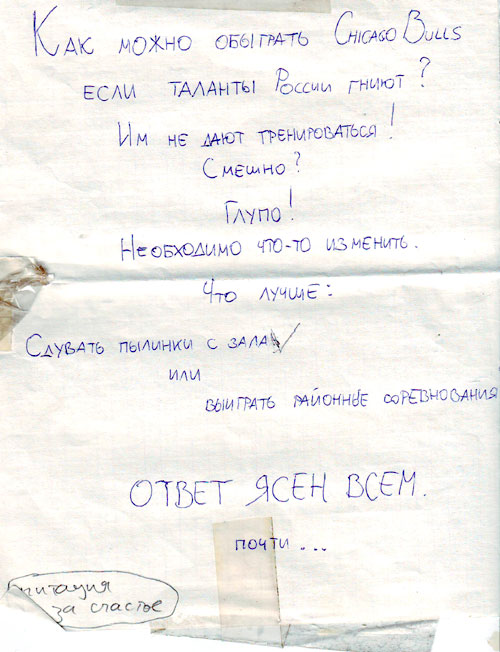 Как можно обыграть Chicago Bulls
если таланты России гниют?
Им не дают тренироваться!
Смешно?
Глупо!
Необходимо что-то изменить.
Что лучше:
Сдувать пылинки с зала
или
выиграть районные соревнования
ОТВЕТ ЯСЕН ВСЕМ.
почти...
за счастье